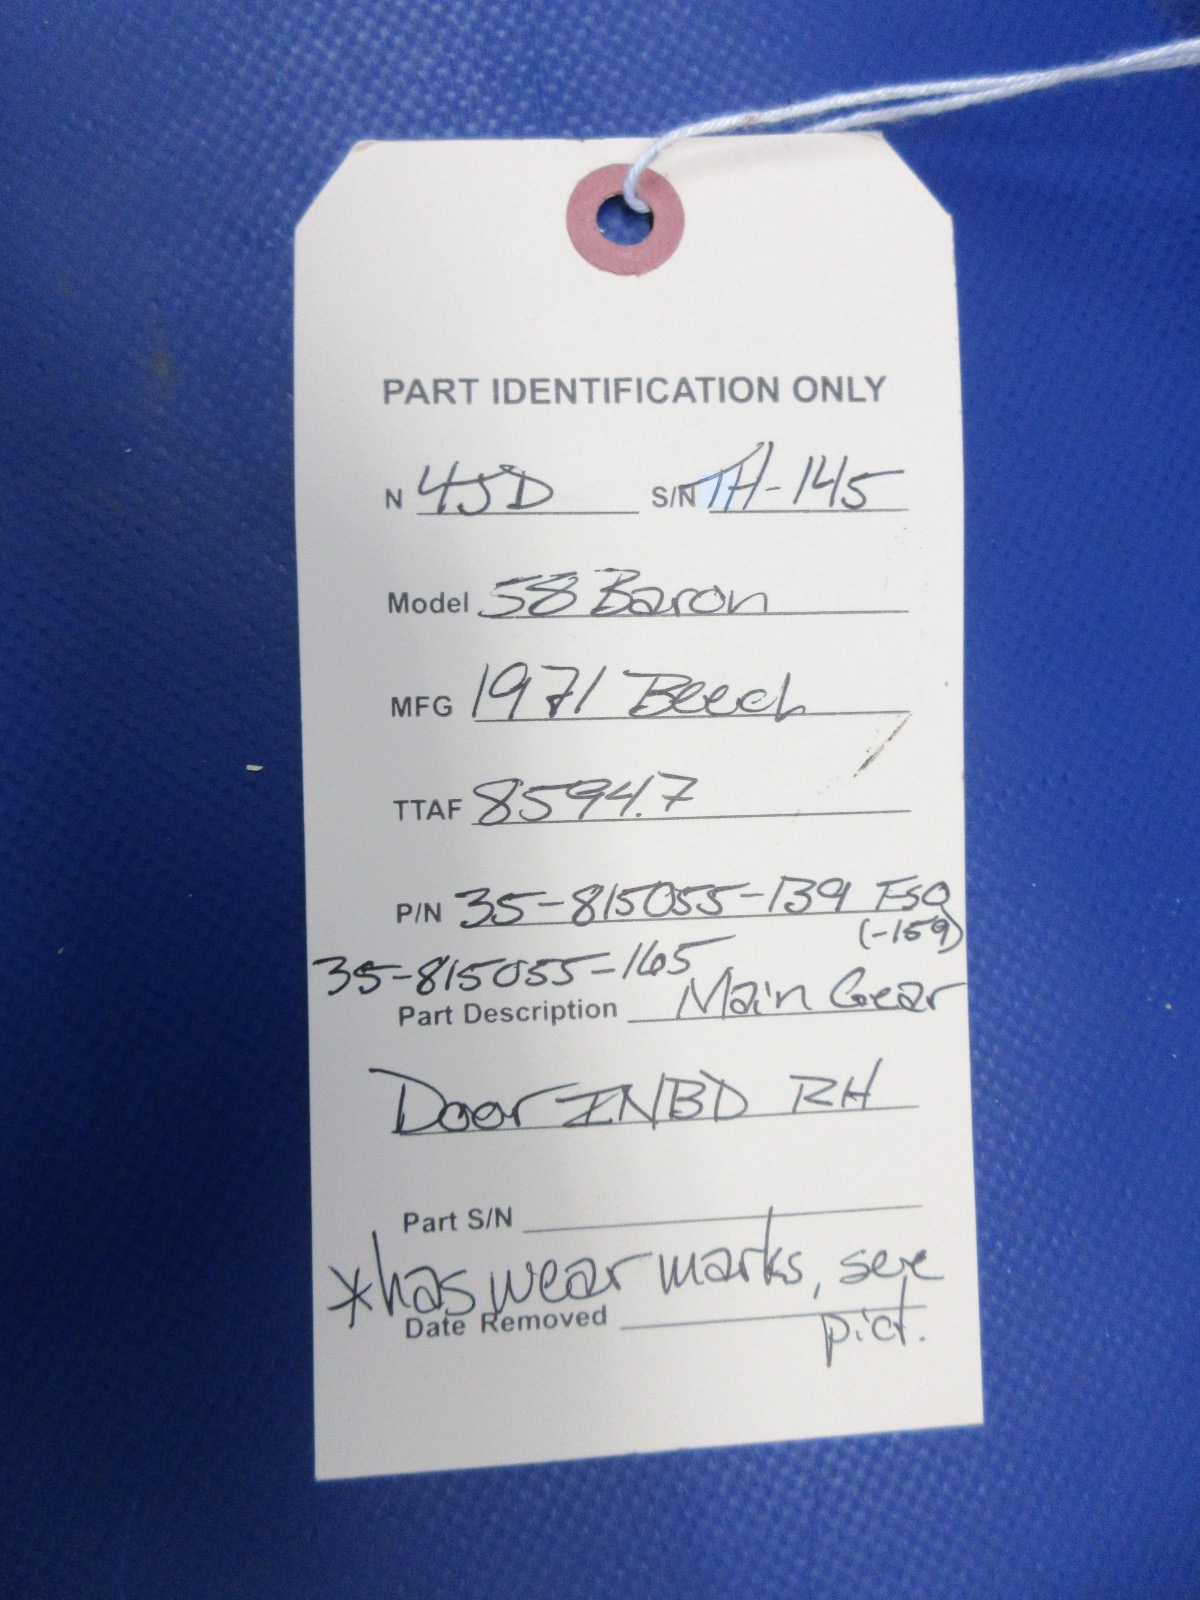 PART IDENTIFICATION ONLY
N 4JD S/N TH-145
Model 58 Baron
MFG 1971 Beech
TTAF 8594.7
P/N 35-815055-139 FSO
(-159)
35-815055-165
Part Description Main Gear
Door INBD RH
Part S/N
*has wear marks, see
Date Removed
pict.